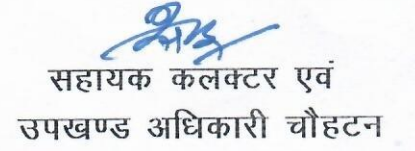 सहायक कलक्टर एवं
उपखण्ड अधिकारी चौहटन